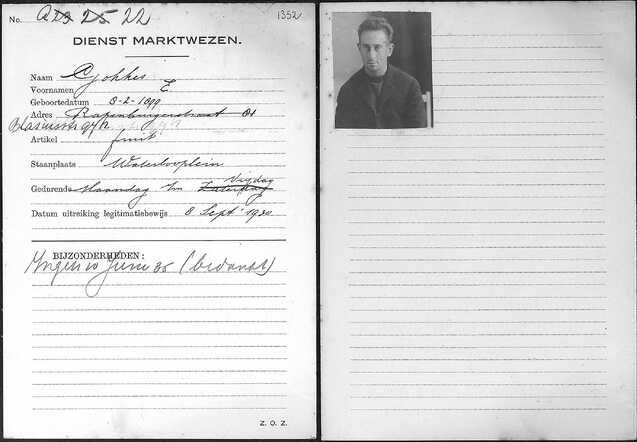 No. A 23 25 22 1352
DIENST MARKTWEZEN.
Naam Gokkes
Voornamen E.
Geboortedatum 8-2-1899
Adres Rapenburgerstraat 81
Blasiusstr
Artikel fruit
Staanplaats Waterlooplein
Vrijdag
Gedurende Maandag t/m Zaterdag
Datum uitreiking legitimatiebewijs 8 Sept 1930
BIJZONDERHEDEN:
Ingetr 10 Juni 35 (bedankt)
Z. O. Z.